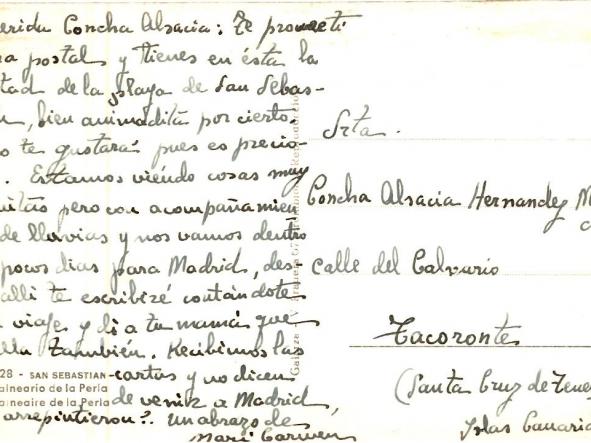 erida Concha Alsacia: Te prometí
a postal y tienes en ésta la
tad de la playa de San Sebas-
, bien animadita por cierto.
o te gustará pues es precio-
. Estamos viendo cosas muy
uitas pero con acompañamien
de lluvias y nos vamos dentro
pocos dias para Madrid, des
alli te escribiré contándote
viaje y di a tu mamá que
ella también. Recibimos las
cartas y no dicen
de venir a Madrid,
arrepintieron?. un abrazo de
Mari Carmen
28 - SAN SEBASTIAN
alneario de la Perla
alneaire de la Perla
Srta.
Concha Alsacia Hernandez M
calle del Calvario
Tacoronte
(Santa Cruz de Tene
Islas Canaria